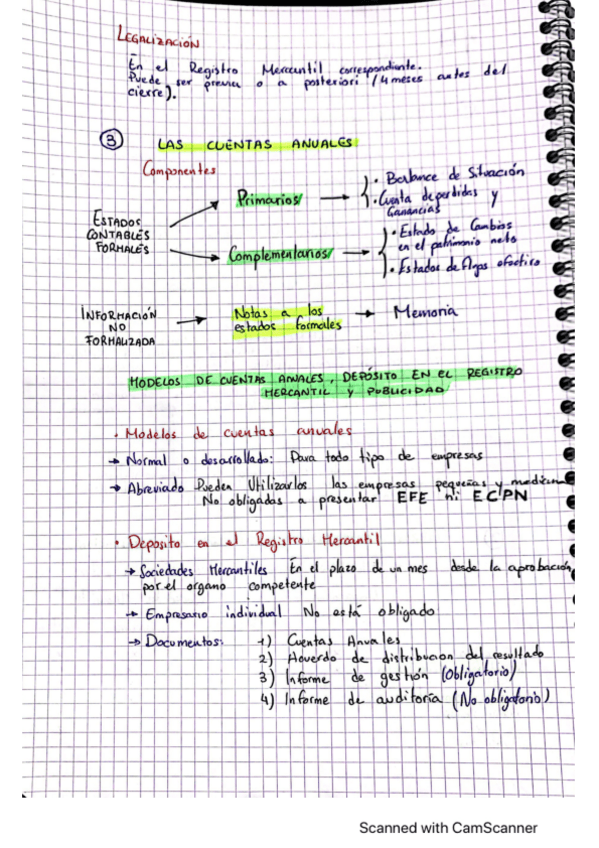 LEGALIZACIÓN
En el Registro Mercantil correspondiente.
Puede ser previa o a posteriori (4 meses antes del
cierre).
3 LAS CUENTAS ANUALES
Componentes
ESTADOS
CONTABLES
FORMALES
Primarios
• Balance de Situación
• Cuenta de perdidas y
Ganancias
Complementarios
• Estado de Cambios
en el patrimonio neto
• Estados de flujos efectivo
INFORMACIÓN
NO
FORMALIZADA
Notas a los
estados formales
Memoria
MODELOS DE CUENTAS ANUALES, DEPÓSITO EN EL REGISTRO
MERCANTIL Y PUBLICIDAD
• Modelos de cuentas anuales
→ Normal o desarrollado: Para todo tipo de empresas
→ Abreviado Pueden Utilizarlos las empresas pequeñas y medianas
No obligadas a presentar EFE ni ECPN
• Deposito en el Registro Mercantil
→ Sociedades Mercantiles En el plazo de un mes desde la aprobación
por el organo competente
→ Empresario individual No está obligado
→ Documentos: 1) Cuentas Anuales
2) Acuerdo de distribucion del resultado
3) Informe de gestión (Obligatorio)
4) Informe de auditoría (No obligatorio)
Scanned with CamScanner